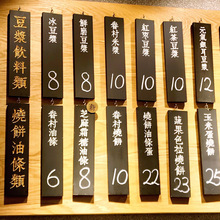 豆漿飲料類
冰豆漿 8
鮮脆豆漿 8
眷村米漿 10
紅茶豆漿 10
紅茶豆漿 10
元氣銀耳豆漿 12
燒餅油條類
眷村油條 6
芝麻霜糖油條 8
眷村燒餅 10
油條燒餅蛋 22
蔬果色拉燒餅 23
玉米燒餅 25